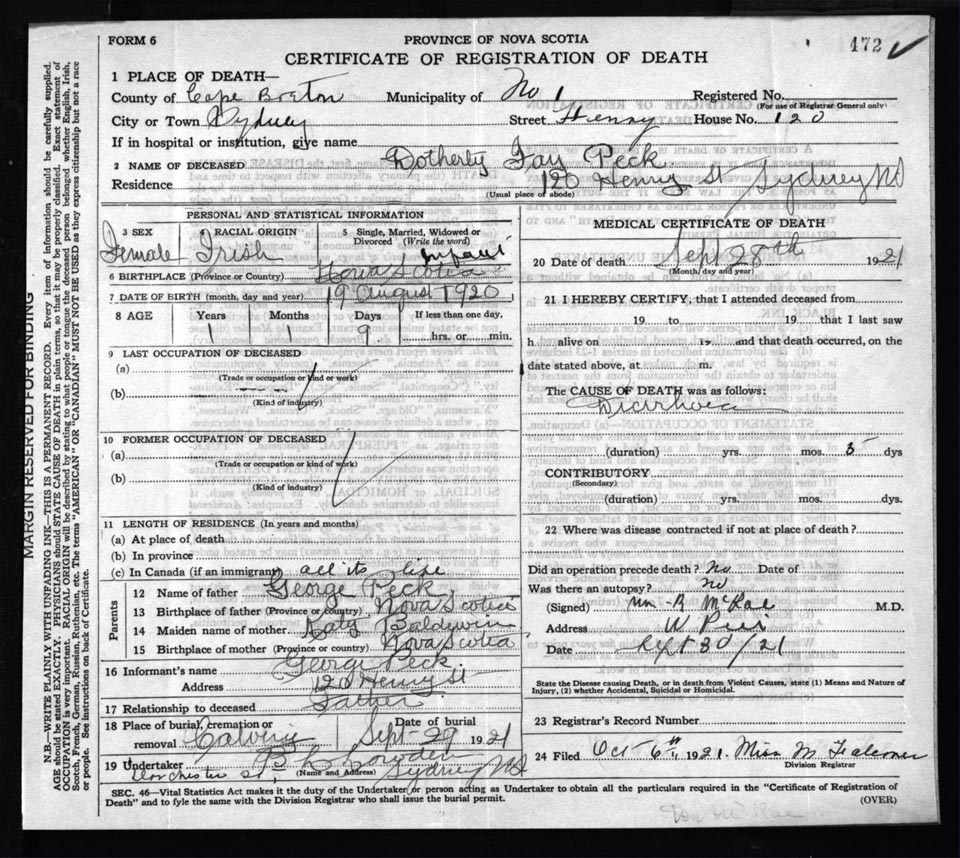 FORM 6
PROVINCE OF NOVA SCOTIA
172
CERTIFICATE OF REGISTRATION OF DEATH
1 PLACE OF DEATH—
County of Cape Breton Municipality of No 1 Registered No.
(For use of Registrar General only)
City or Town Sydney Street Henry House No. 120
If in hospital or institution, give name
2 NAME OF DECEASED Dotherty Fay Peck
Residence 120 Henry St Sydney NS
(Usual place of abode)
PERSONAL AND STATISTICAL INFORMATION
3 SEX 4 RACIAL ORIGIN 5 Single, Married, Widowed or Divorced (Write the word)
Female Irish Infant
6 BIRTHPLACE (Province or Country) Nova Scotia
7 DATE OF BIRTH (month, day and year) 19 August 1920
8 AGE Years Months Days If less than one day,
1 1 9 hrs. or min.
9 LAST OCCUPATION OF DECEASED
(a)
(Trade or occupation or kind or work)
(b)
(Kind of industry)
10 FORMER OCCUPATION OF DECEASED
(a)
(Trade or occupation or kind of work)
(b)
(Kind of industry)
11 LENGTH OF RESIDENCE (In years and months)
(a) At place of death
(b) In province
(c) In Canada (if an immigrant) all its life
Parents
12 Name of father George Peck
13 Birthplace of father (Province or country) Nova Scotia
14 Maiden name of mother Katy Baldwin
15 Birthplace of mother (Province or country) Nova Scotia
16 Informant's name George Peck
Address 120 Henry St
17 Relationship to deceased Father
18 Place of burial, cremation or removal Date of burial
Sept-29 1921
19 Undertaker
Dorchester St, (Name and Address) Sydney NS
MEDICAL CERTIFICATE OF DEATH
20 Date of death Sept 28th 1921
(Month, day and year)
21 I HEREBY CERTIFY, that I attended deceased from
19 to 19 that I last saw
h alive on 19 and that death occurred, on the
date stated above, at m.
The CAUSE OF DEATH was as follows:
Diarrhoea
(duration) yrs. mos. 3 dys
CONTRIBUTORY
(Secondary)
(duration) yrs. mos. dys.
22 Where was disease contracted if not at place of death?
Did an operation precede death? No Date of
Was there an autopsy? no
(Signed) Wm R McRae M.D.
Address W Pier
Date Sept 30/21
State the Disease causing Death, or in death from Violent Causes, state (1) Means and Nature of
Injury, (2) whether Accidental, Suicidal or Homicidal.
23 Registrar's Record Number
24 Filed Oct 6th, 1921. Miss M Falconer
Division Registrar
SEC. 46—Vital Statistics Act makes it the duty of the Undertaker or person acting as Undertaker to obtain all the particulars required in the "Certificate of Registration of
Death" and to fyle the same with the Division Registrar who shall issue the burial permit.
(OVER)
MARGIN RESERVED FOR BINDING
N.B.—WRITE PLAINLY WITH UNFADING INK—THIS IS A PERMANENT RECORD. Every item of information should be carefully supplied.
AGE should be stated EXACTLY. PHYSICIANS should STATE CAUSE OF DEATH in plain terms, so that it may be properly classified. Exact statement of
OCCUPATION is very important. RACIAL ORIGIN will be described by stating to what people or tongue the deceased person belonged, whether English, Irish,
Scotch, French, German, Russian, Ruthenian, etc. The terms "AMERICAN" OR "CANADIAN" MUST NOT BE USED as they express citizenship but not a race
or people. See instructions on back of Certificate.